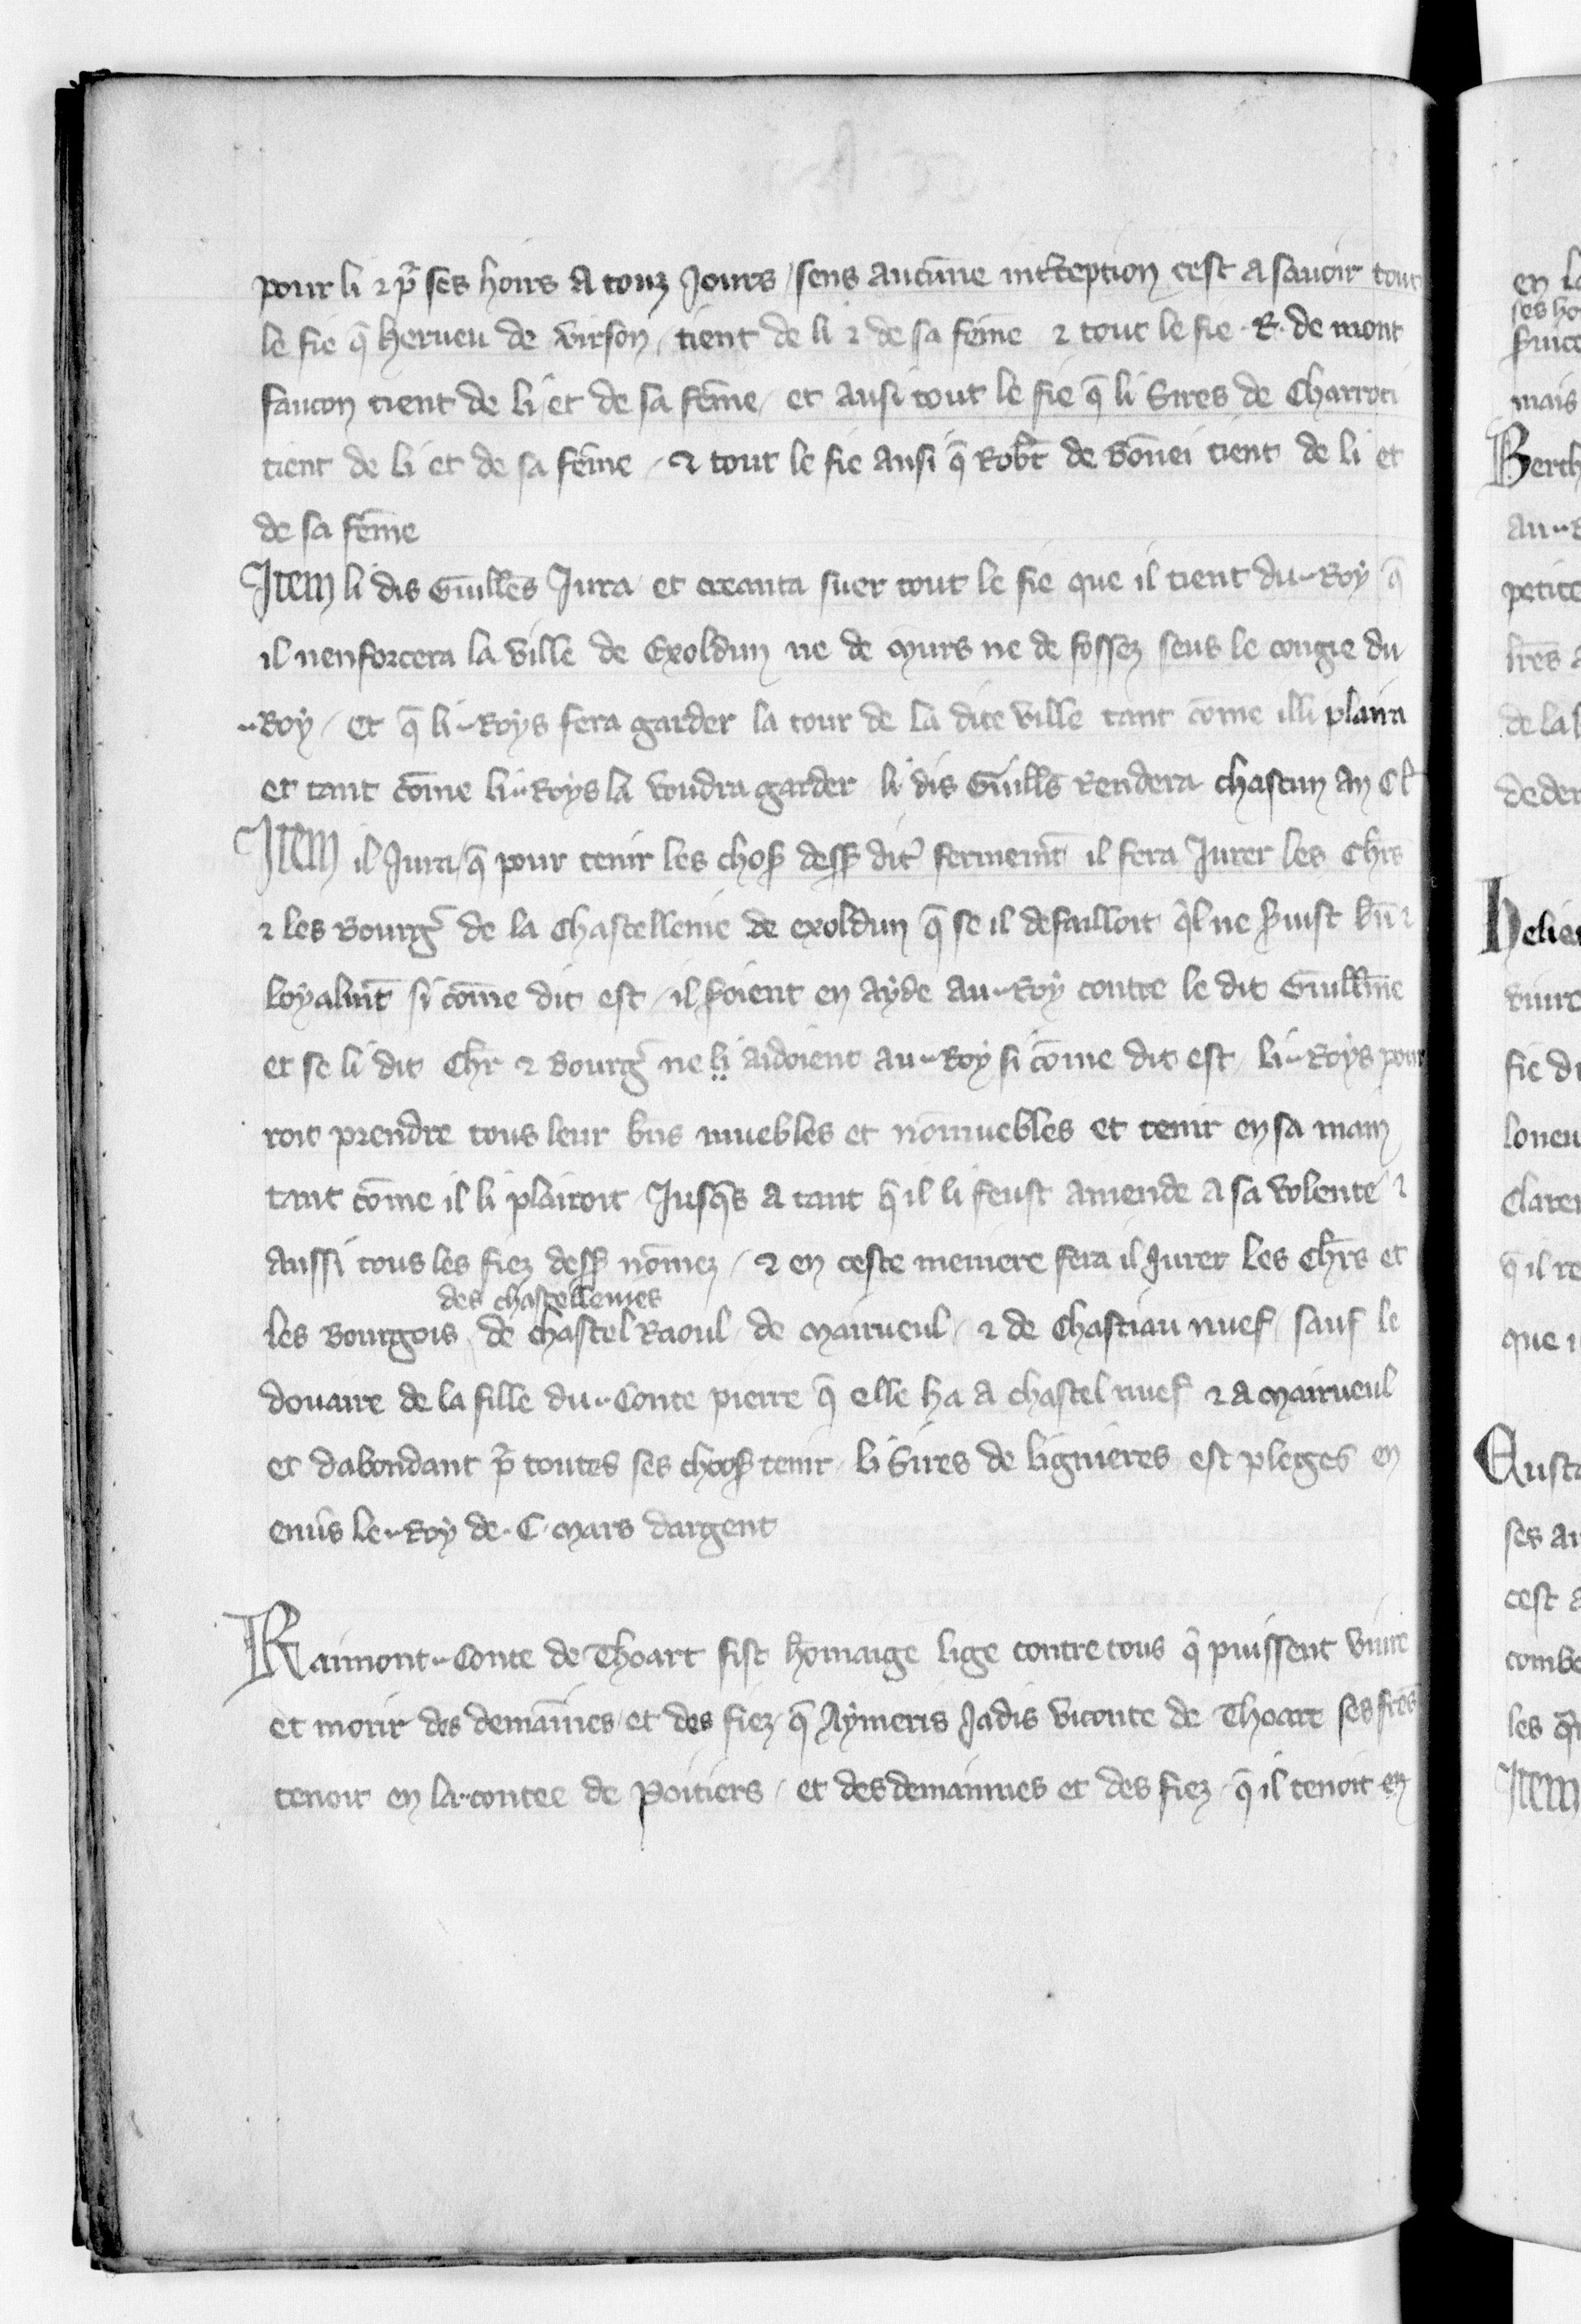 pour li ⁊ pͬ ses hoirs a touz Jours / sens aucune int͛ception cest a sauoir tout
le fie q̄ herueu de virson / tient de li ⁊ de sa fēme ⁊ tout le fie .R. de mont
faucon tient de li et de sa fēme / et ausi tout le fie q̄ li Sires de Charroti
tient de li et de sa fēme / ⁊ tout le fie ausi q̄ Robt̄ de Bōnei tient de li et
de sa fēme
Item li dis Guillēs Jura et creanta suer tout le fie que il tient du .. Roy q̄
il nenforcera la ville de Exoldun ne de murs ne de fossez sens le congie du
.. Roy / et q̄ li .. Roys fera garder la tour de la dite ville tant cōme illi plaira
et tant cōme li .. Roys la voudra garder li dis Guills̄ Rendera chascun an Cl̄
Item il Jura / q̄ pour tenir les chos̄ dess̄ dit᷒ fermemt̄ il fera Jurer les Chr̄s
⁊ les Bourg᷒ de la Chastellenie de exoldun q̄ se il defailloit q̇l ne s̄uist bn̄ ⁊
loyalmt̄ si cōme dit est / il s̄oient en ayde au .. Roy contre le dit Guillm̄e
et se li dit Chr̄ ⁊ Bourg᷒ ne li aidoient au .. Roy si cōme dit est / li .. Roys pour
roit prendre tous leur bn̄s muebles et nōmuebles et tenir en sa main
tant cōme il li plairoit Jusq̄s a tant q̄ il li feust amende a sa volente ⁊
aussi tous les fiez dess̄ nōmez / ⁊ en ceste meniere fera il Jurer les Chr̄s et
des chastellenies
les Bourgois de chastel Raoul de mairueul / ⁊ de Chastiau nuef sauf le
douaire de la fille du .. Conte pierre q̄ elle ha a chastel nuef ⁊ a mairueul
et dabondant pͬ toutes ses choos̄ tenir li Sires de lignieres est pleges en
enūs le .. Roy de . C . mars dargent
Raimont .. Conte de Thoart fist homaige lige contre tous q̇ puissent viure
et morir des demaines et des fiez q̄ Aymeris Jadis viconte de Thoart ses freˢ
tenoit en la .. contee de Poitiers / et des demainnes et des fiez q̄ il tenoit en
en la
ses ho
mais
Berth
petite
de la
deder
helie
viure
fie du
q̄ il re
que i
ses
cest a
Item